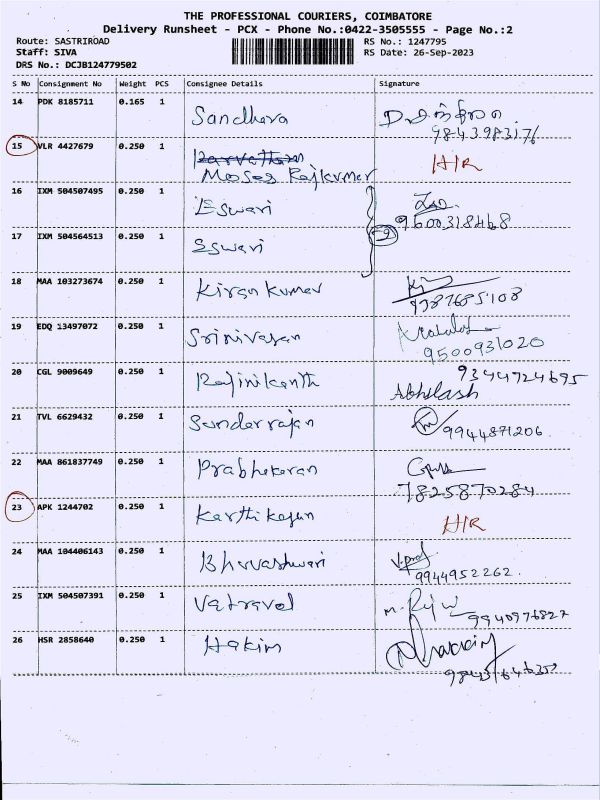 THE PROFESSIONAL COURIERS, COIMBATORE
Delivery Runsheet - PCX - Phone No.:0422-3505555 - Page No.:2
Route: SASTRIROAD RS No.: 1247795
Staff: SIVA RS Date: 26-Sep-2023
DRS No.: DCJB124779502
S No Consignment No Weight PCS Consignee Details Signature
14 PDK 8185711 0.165 1 Sandhera
9843983176
15 VLR 4427679 0.250 1 H/R
Moses Rajkumar
16 IXM 504507495 0.250 1 Eswari
9600318468
17 IXM 504564513 0.250 1 Eswari
18 MAA 103273674 0.250 1 Kiran Kumar
9387685108
19 EDQ 13497072 0.250 1 Srinivasan
9500931020
20 CGL 9009649 0.250 1 Rajinikanth 9344724695
Abhilash
21 TVL 6629432 0.250 1 Sundarrajan 9944871206
22 MAA 861837749 0.250 1 Prabhakaran
7825870284
23 APK 1244702 0.250 1 Karthikeyan H/R
24 MAA 104406143 0.250 1 Bhuvashwari
9944952262
25 IXM 504507391 0.250 1 9940976827
26 HSR 2858640 0.250 1 Hakim